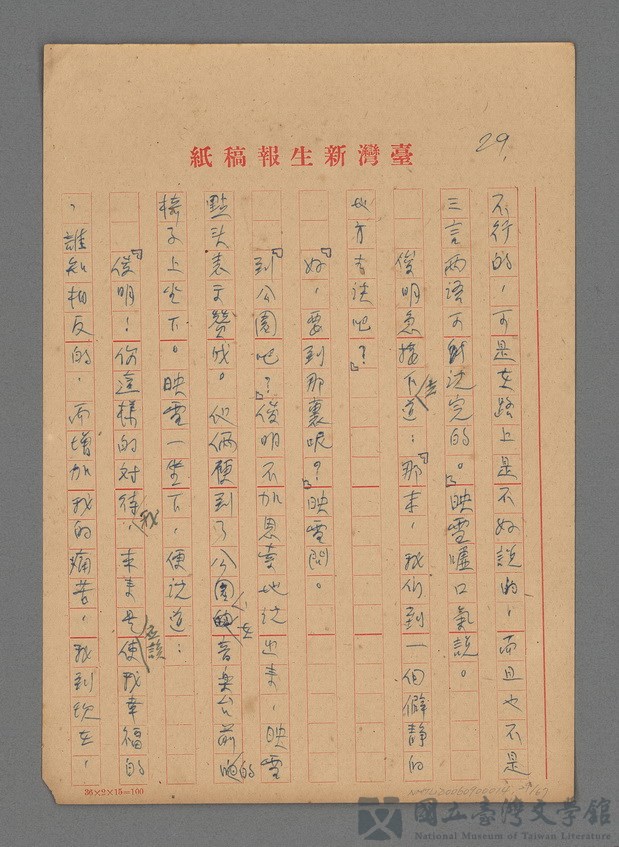 29.
臺灣新生報稿紙
不行的，可是在路上是不好說的，而且也不是
三言兩語可說完的。」映雪嘘口氣說。
俊明急接下去道：「那末，我們到一個僻靜的
地方去談吧？」
「好，要到那裏呢？」映雪問。
「到公園吧？」俊明不加思索地說出來，映雪
點头表示贊成。他倆便到了公園，在音楽台前的
椅子上坐下。映雪一坐下，便說道：
「俊明！你這樣的对待我，本来是应該使我幸福的
，誰知相反的，而增加我的痛苦，我到現在，
36×2×15=100
國立臺灣文學館
National Museum of Taiwan Literature